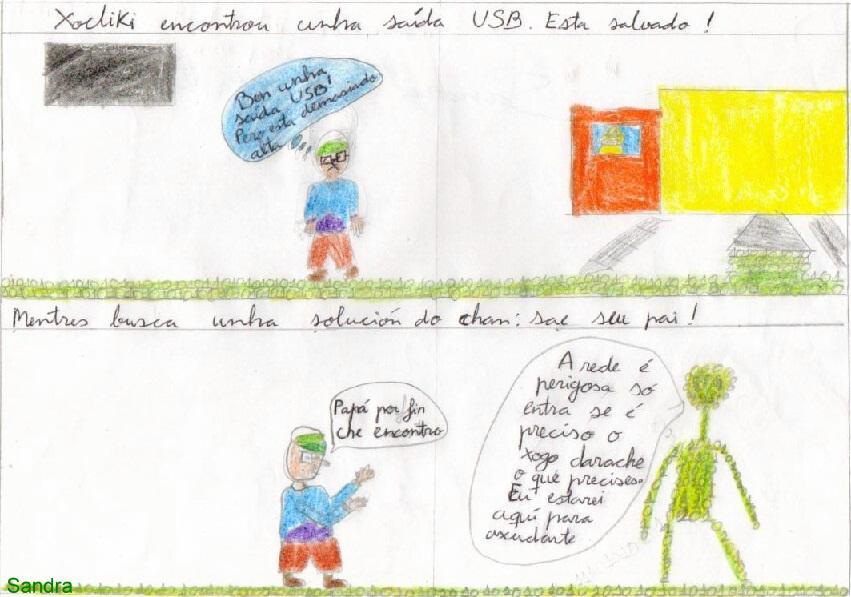 Xocliki encontrou unha saída USB. Esta salvado!
Ben unha
saída USB!
Pero esta demasiado
alta
Mentres busca unha solución do chan: sae seu pai!
Papá por fin
che encontro
A rede é
perigosa só
entra se é
preciso o
xogo darache
o que precises.
Eu estarei
aquí para
axudarte
Sandra